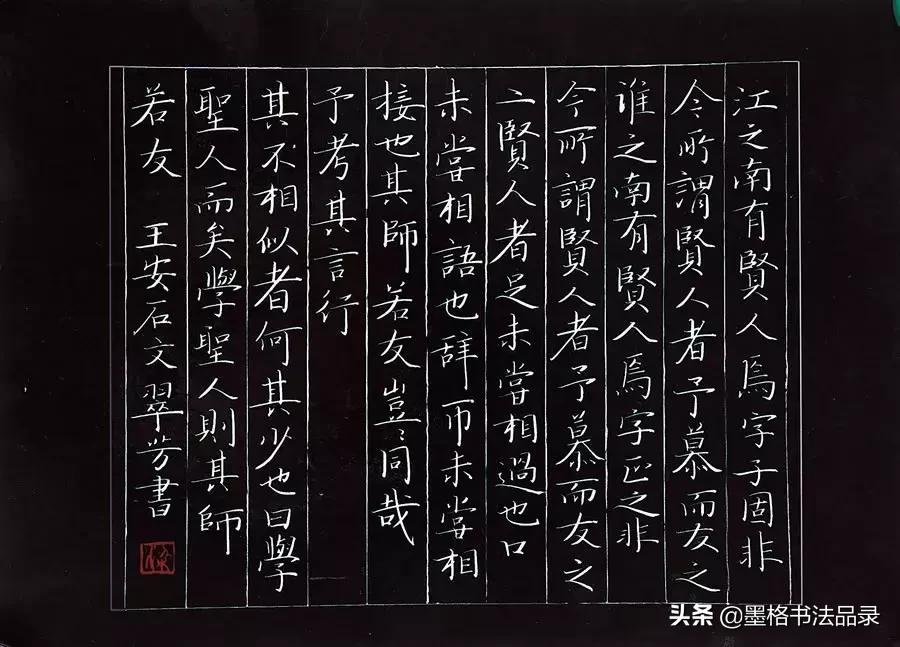 江之南有賢人焉字子固非
今所謂賢人者予慕而友之
淮之南有賢人焉字正之非
今所謂賢人者予慕而友之
二賢人者足未嘗相過也口
未嘗相語也辞币未嘗相
接也其師若友豈〻同哉
予考其言行
其不相似者何其少也曰學
聖人而矣學聖人則其師
若友 王安石文翠芳書
头条 @墨格书法品录